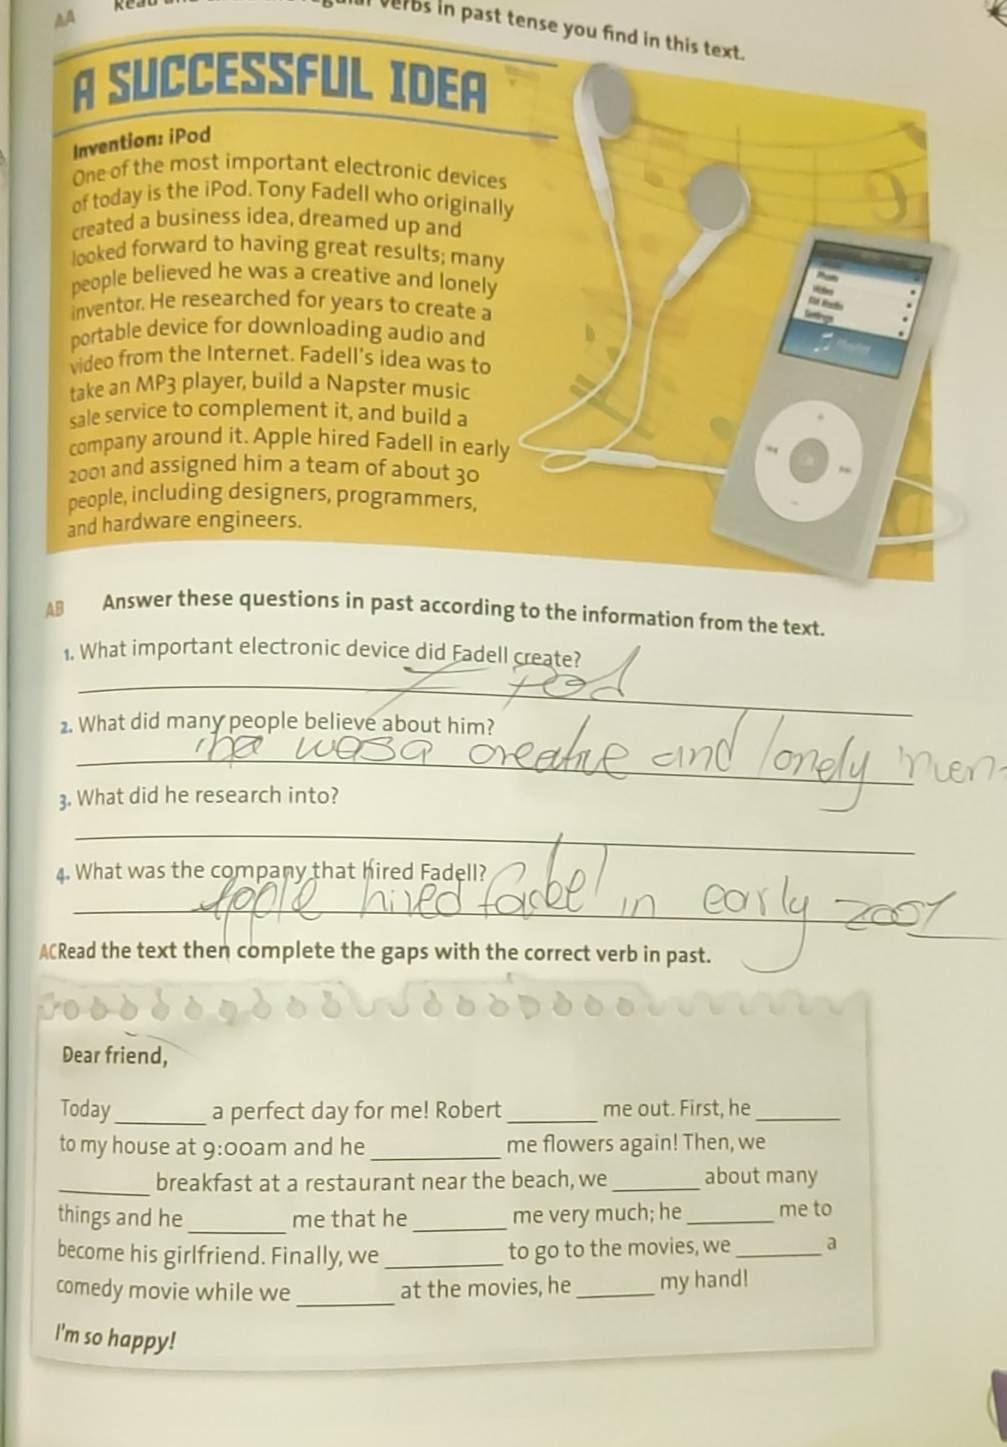 AA verbs in past tense you find in this text.
A SUCCESSFUL IDEA
Invention: iPod
One of the most important electronic devices
of today is the iPod. Tony Fadell who originally
created a business idea, dreamed up and
looked forward to having great results; many
people believed he was a creative and lonely
inventor. He researched for years to create a
portable device for downloading audio and
video from the Internet. Fadell's idea was to
take an MP3 player, build a Napster music
sale service to complement it, and build a
company around it. Apple hired Fadell in early
2001 and assigned him a team of about 30
people, including designers, programmers,
and hardware engineers.
AB Answer these questions in past according to the information from the text.
1. What important electronic device did Fadell create?
I Pod
2. What did many people believe about him?
he was a creative and lonely
3. What did he research into?
4. What was the company that hired Fadell?
hired in early 2001
AC Read the text then complete the gaps with the correct verb in past.
Dear friend,
Today______a perfect day for me! Robert______me out. First, he______
to my house at 9:00am and he______me flowers again! Then, we
______breakfast at a restaurant near the beach, we______about many
things and he______me that he______me very much; he______me to
become his girlfriend. Finally, we______to go to the movies, we______a
comedy movie while we______at the movies, he______my hand!
I'm so happy!